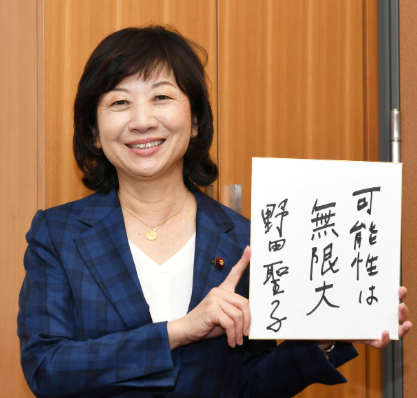 可能性は
無限大
野田聖子